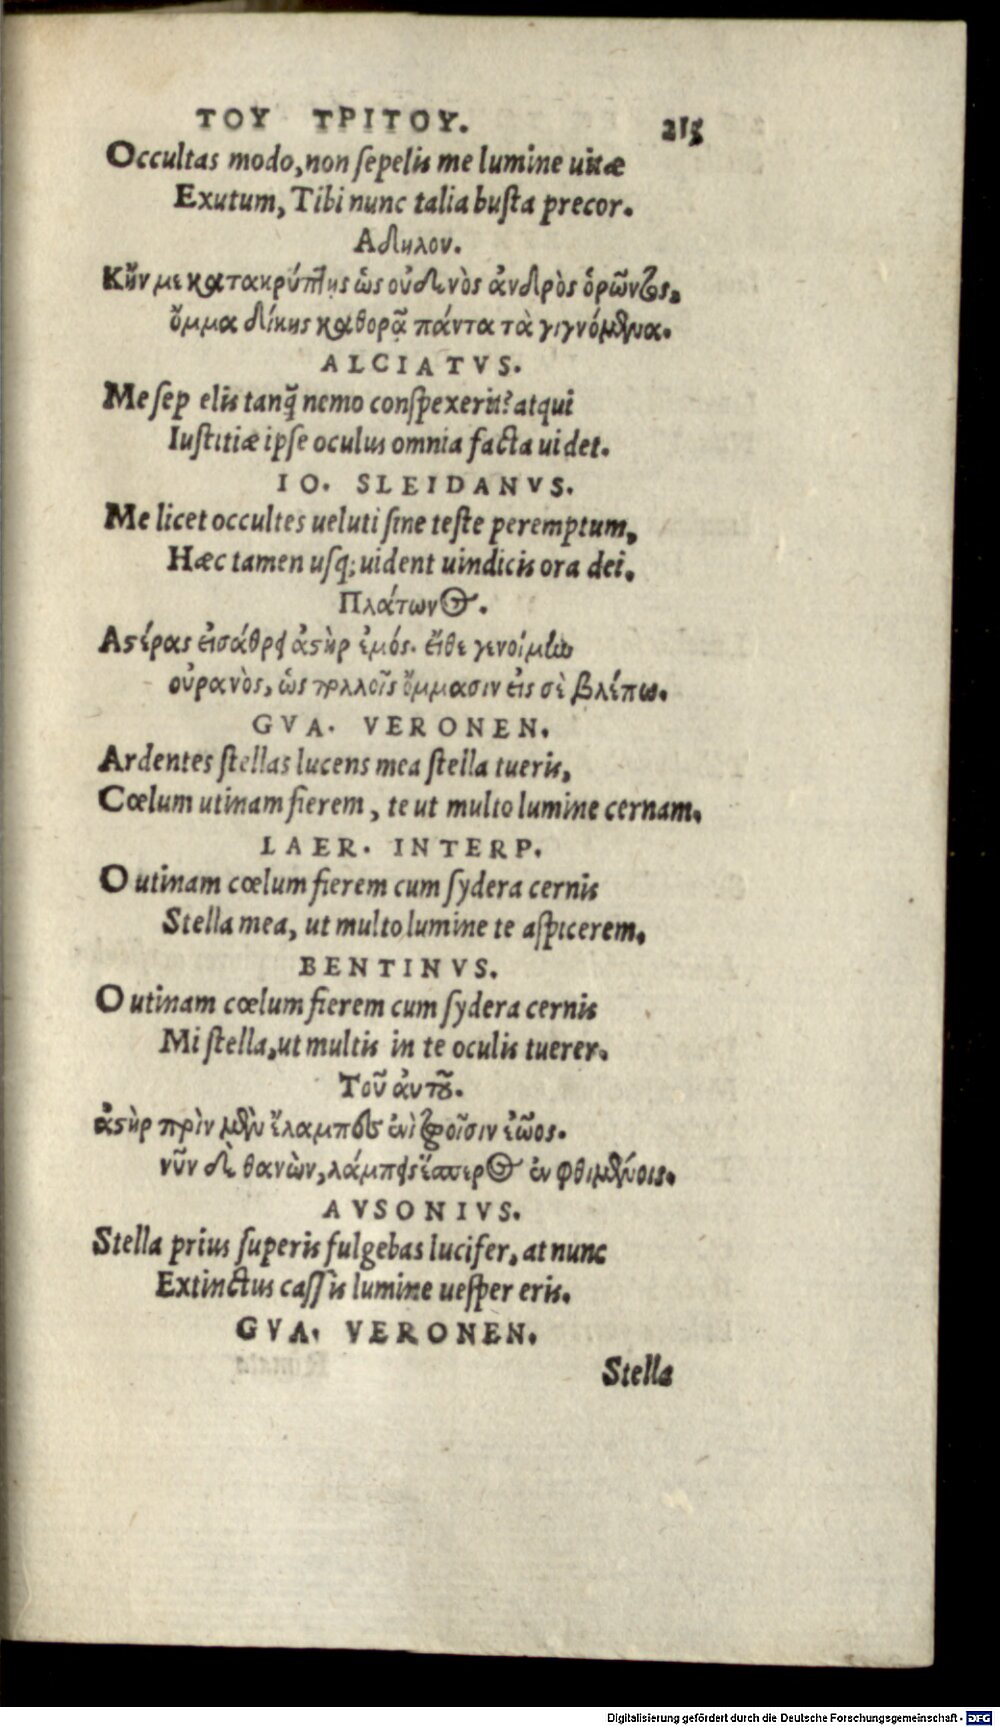 ΤΟΥ ΤΡΙΤΟΥ. 215
Occultas modo, non sepelis me lumine uitæ
Exutum, Tibi nunc talia busta precor.
Αδηλον.
Κἤν με κατακρύπτῃς ὡς οὐδενὸς ἀνδρὸς ὁρῶντος,
ὄμμα δίκης καθορᾷ πάντα τὰ γιγνόμενα.
ALCIATVS.
Me sep elis tanq̃ nemo conspexerit? atqui
Iustitiæ ipse oculus omnia facta uidet.
IO. SLEIDANVS.
Me licet occultes ueluti sine teste peremptum,
Hæc tamen usq; uident uindicis ora dei.
Πλάτωνος.
Αστέρας εἰσάθρει ἀστὴρ ἐμός. εἴθε γενοίμην
οὐρανὸς, ὡς πολλοῖς ὄμμασιν εἰς σὲ βλέπω.
GVA. VERONEN.
Ardentes stellas lucens mea stella tueris,
Cœlum utinam fierem, te ut multo lumine cernam.
LAER. INTERP.
O utinam cœlum fierem cum sydera cernis
Stella mea, ut multo lumine te aspicerem.
BENTINVS.
O utinam cœlum fierem cum sydera cernis
Mi stella, ut multis in te oculis tuerer.
Τοῦ ἀυτοῦ.
ἀστὴρ πρὶν μὲν ἔλαμπες ἐνὶ ζωοῖσιν ἑῶος.
νῦν δὲ θανὼν, λάμπεις ἕσπερος ἐν φθιμένοις.
AVSONIVS.
Stella prius superis fulgebas lucifer, at nunc
Extinctus cassis lumine uesper eris.
GVA. VERONEN.
Stella
Digitalisierung gefördert durch die Deutsche Forschungsgemeinschaft - DFG